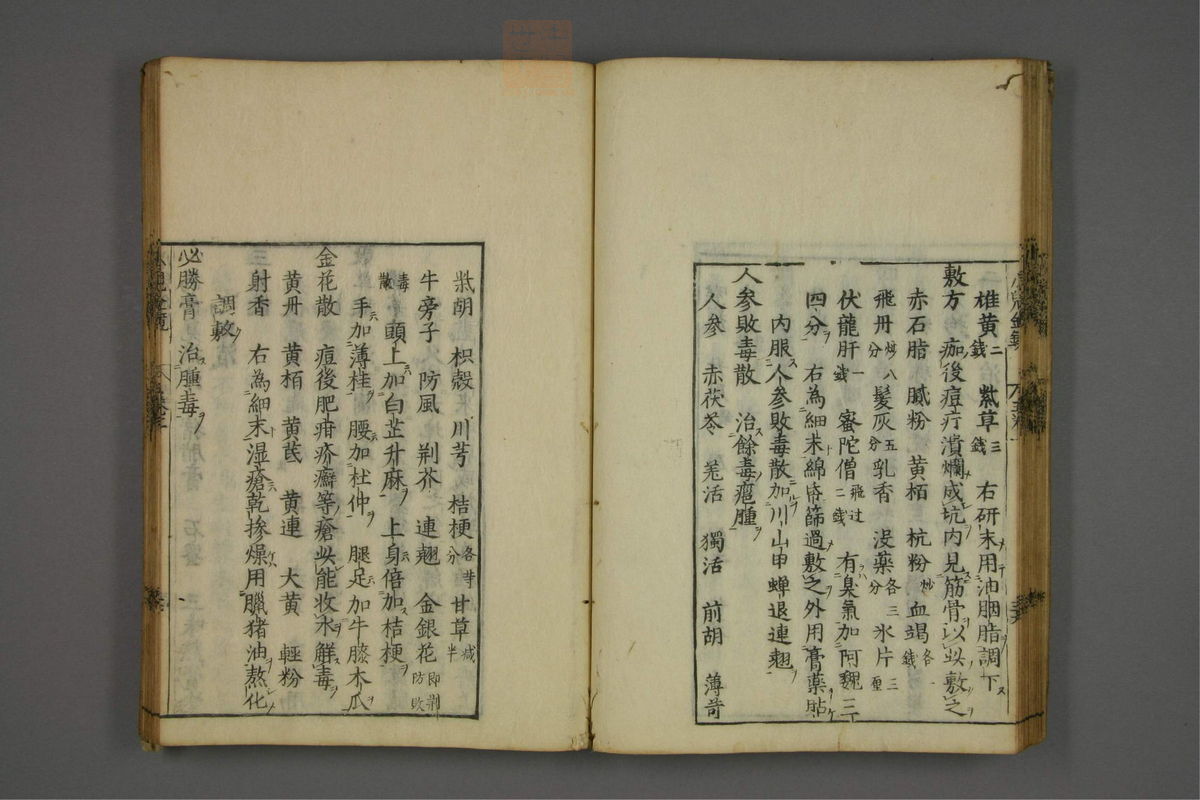 雄黄二錢 紫草三錢 右研末用油胭脂調下
敷方 痂後痘疔潰爛成坑内見筋骨以此敷之
赤石脂 膩粉 黄栢 杭粉炒 血竭各一錢
飛丹炒八分 髪灰五分 乳香 沒藥各三分 氷片三厘
伏龍肝一錢 蜜陀僧飛过二錢 有臭氣加阿魏三
四分 右為細末綿帋篩過敷之外用膏藥貼
内服人参敗毒散加川山甲蟬退連翹
人参敗毒散 治餘毒瘟腫
人参 赤茯苓 羌活 獨活 前胡 薄苛
柴胡 枳殼 川芎 桔梗各等分 甘草减半
牛旁子 防風 荆芥 連翹 金銀花即荆防敗
毒散 頭上加白芷升麻 上身倍加桔梗
手加薄桂 腰加杜仲 腿足加牛膝木瓜
金花散 痘後肥疳疥癬等瘡此能收水觧毒
黄丹 黄栢 黄芪 黄連 大黄 輕粉
射香 右為細末湿瘡乾摻燥用臘猪油熬化
調敷
必勝膏 治腫毒